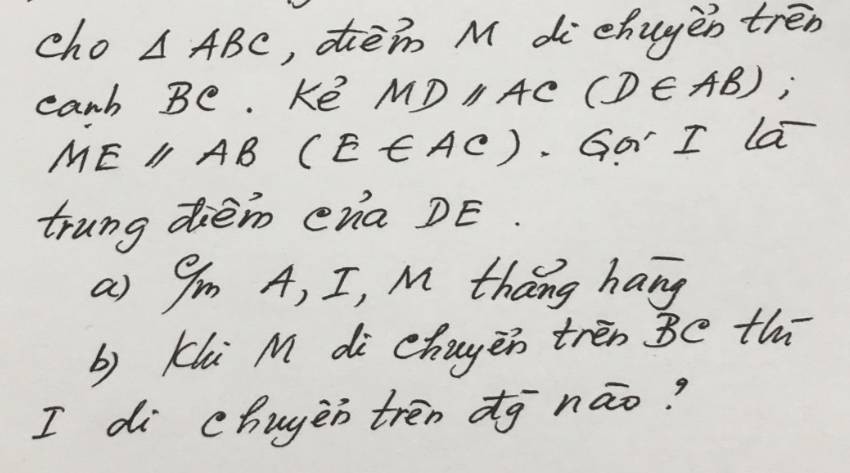 cho Δ ABC, điểm M di chuyển trên
cạnh BC. Kẻ MD // AC (D ∈ AB);
ME // AB (E ∈ AC). Gọi I là
trung điểm của DE.
a) c/m A, I, M thẳng hàng
b) Khi M di chuyển trên BC thì
I di chuyển trên đg nào?